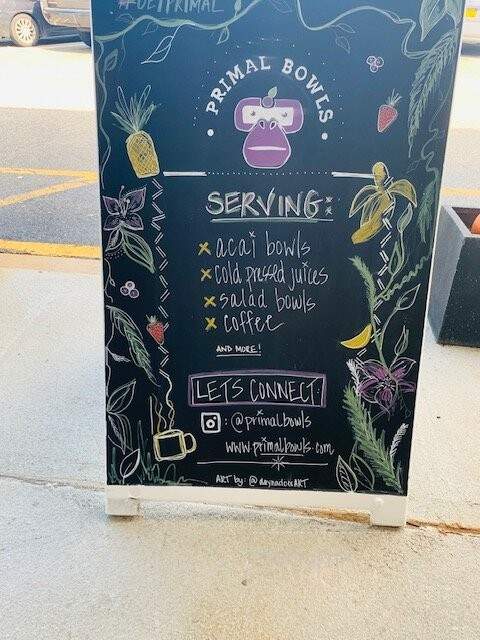 #GETPRIMAL
PRIMAL BOWLS
SERVING:
x acai bowls
x cold pressed juices
x salad bowls
x coffee
AND MORE!
LETS CONNECT
: @primalbowls
www.primalbowls.com
ART by: @